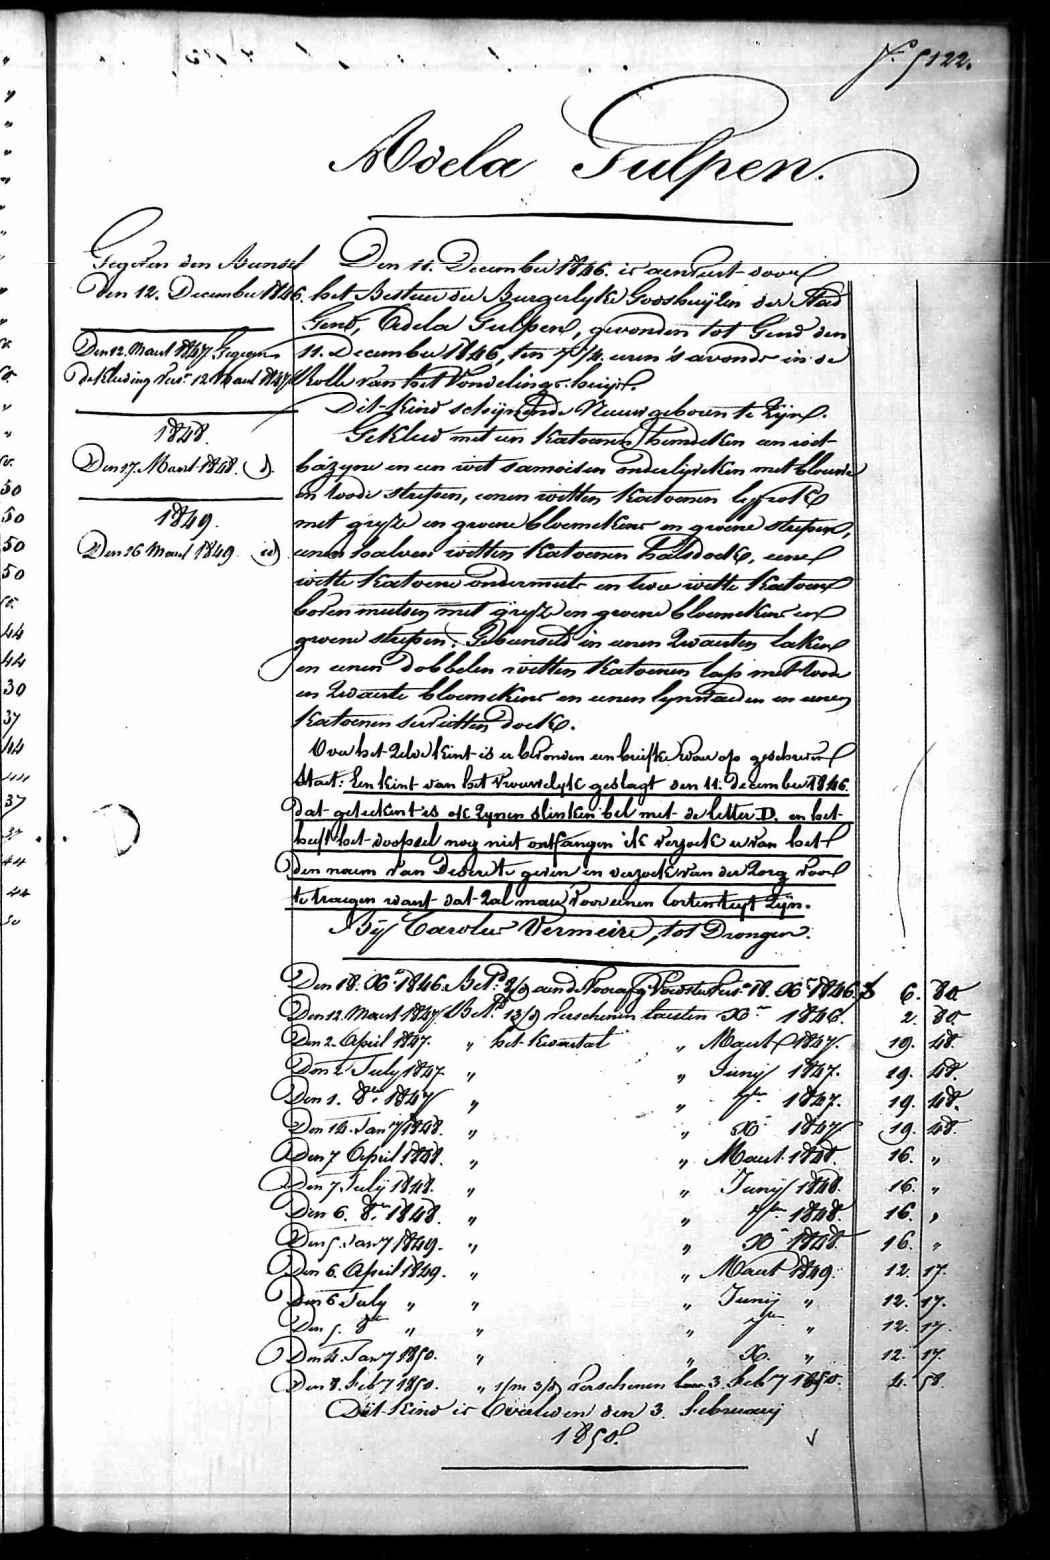 N.° 5122.
Adela Gulpen.
Gegeven den Bunsel
den 12. December 1846.
Den 12. Maart 1847 Gegeven
de Kleeding vers. 12 Maart 1847
1848.
Den 17. Maart 1848. id.
1849.
Den 26 Maart 1849 id
Den 11. December 1846. is aenveert door
het Bestuer der Burgerlyke Godshuyzen der Stad
Gend, Adela Gulpen, gevonden tot Gend den
11. December 1846, ten 7 3/4. uren 's avonds in de
Rolle van het Vondelings-huys.
Dit Kind schynende Nieuwgeboren te Zyn.
Gekleed met een Katoenen hemdeken een wit
bazyne en een wit samoisen onderlyveken met blauwe
en roode strepen, eenen witten Katoenen lyfrok
met gryze en groene bloemekens en groene strepen,
eenen halven witten Katoenen halsdoek, eene
witte Katoene ondermuts en twee witte Katoene
boven mutsen met gryze en groene bloemekens en
groene strepen. Gebunseld in eenen Zwarten laken
en eenen dobbelen witten Katoenen lap met roode
en Zwarte bloemekens en eenen lynwaeden en eenen
Katoenen servietten doek.
Over het Zelve kint is er bevonden een briefke waar op geschreven
Staet: Een kint van het vrouwelyk geslagt den 11. december 1846.
dat geteekent is op Zynen slinken bel met de letter D. en het
heeft het doopsel nog niet ontfangen ik verzoek u van het
den naem van Desireté geven en verzoek van der Zorg voor
te draegen want dat Zal maer voor eenen corten teyt Zyn.
By Carolus Vermeire, tot Drongen.
Den 18. Xb 1846. Bet.d aen de Voorafg. Voedster vers. 18. Xb 1846. f 6. 80.
Den 12. Maart 1847. Bet.d verschenen laesten Xb 1846. 2. 80.
Den 2. April 1847. " het Kwartael " Maart 1847. 19. 48.
Den 2 July 1847. " " Juny 1847. 19. 48.
Den 1. 8br 1847 " " 7br 1847. 19. 48.
Den 14. Jan.y 1848. " " Xb 1847 19. 48.
Den 7 April 1848. " " Maart 1848. 16. "
Den 7 July 1848. " " Juny 1848. 16. "
Den 6. 8br 1848. " " 7br 1848. 16. "
Den 5. Jan.y 1849. " " Xb 1848. 16. "
Den 6. April 1849. " " Maart 1849. 12. 17.
Den 6 July " " " Juny " 12. 17.
Den 5. 8br " " " 7br " 12. 17.
Den 4. Jan.y 1850. " " X. " 12. 17.
Den 8. Feb.y 1850. " verschenen 3. Feb.y 1850. 4. 58.
Dit Kind is Overleden den 3. February
1850.
50
50
50
50
44
44
30
37
44
44
37
44
44